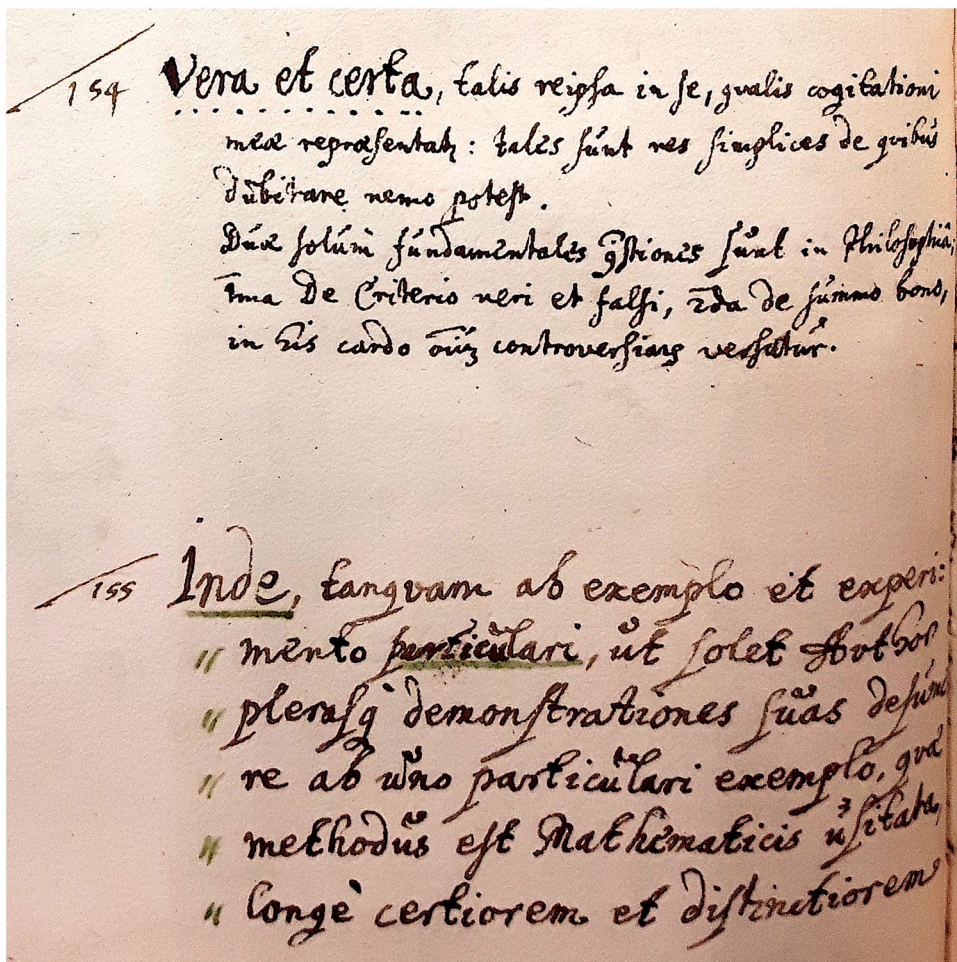 154 Vera et certa, talis reipsa in se, qualis cogitationi
meæ repræsentatꝫ: tales sunt res simplices de quibus
dubitare nemo potest.
Duæ solum fundamentales qꝫstiones sunt in Philosophiâ,
1ma De Criterio veri et falsi, 2da de summo bono,
in his cardo oīuꝫ controversiaꝝ versatur.
155 Inde, tanqvam ab exemplo et experi:
" mento particulari, ut solet Author
" plerasqꝫ demonstrationes suas desume
" re ab uno particulari exemplo, qvæ
" methodus est Mathematicis usitata,
" longè certiorem et distinctiorem